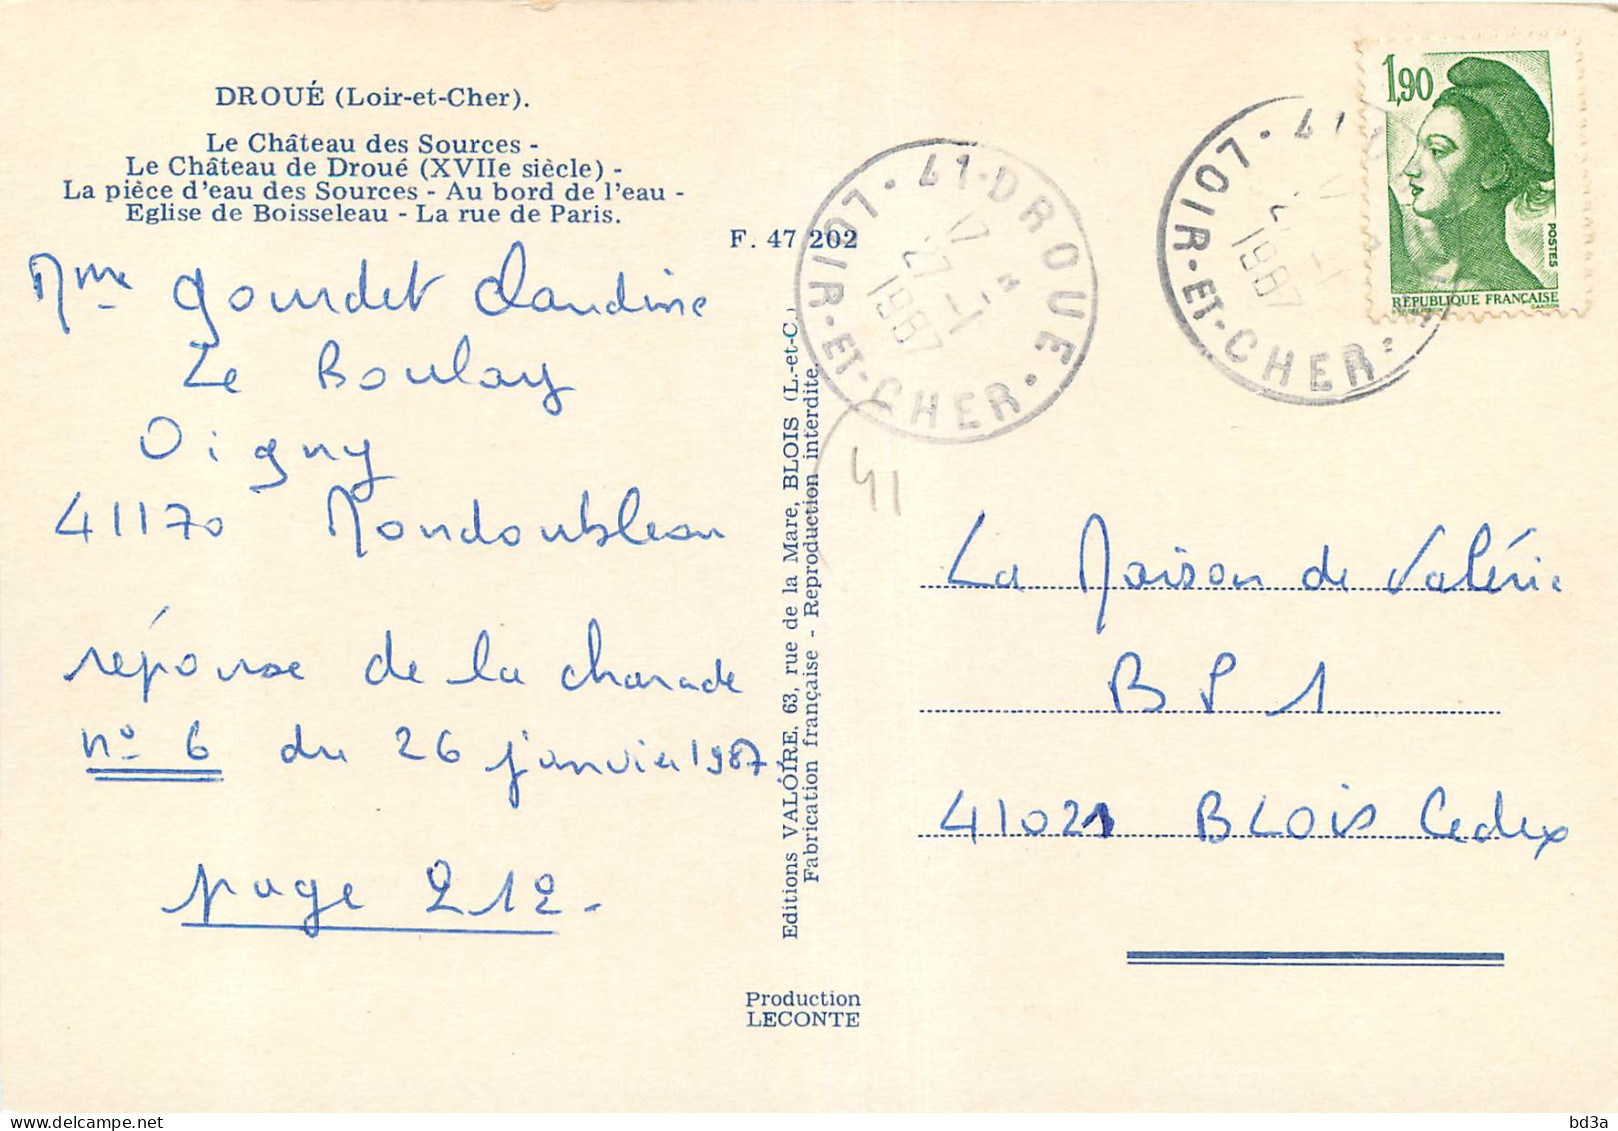 DROUÉ (Loir-et-Cher).
Le Château des Sources -
Le Château de Droué (XVIIe siècle) -
La pièce d'eau des Sources - Au bord de l'eau -
Eglise de Boisseleau - La rue de Paris.
F. 47 202
Mme Gourdet Claudine
Le Boulay
Oigny
41170 Mondoubleau
réponse de la charade
n° 6 du 26 janvier 1987
page 212.
Editions VALOIRE, 63, rue de la Mare, BLOIS (L.-et-C.)
Fabrication française - Reproduction interdite.
Production
LECONTE
41-DROUE
LOIR-ET-CHER
17 H
27 -1
1987
41
LOIR-ET-CHER
1987
1,90
POSTES
RÉPUBLIQUE FRANÇAISE
GANDON
La Maison de Valérie
BP 1
41021 BLOIS Cedex
bd3a